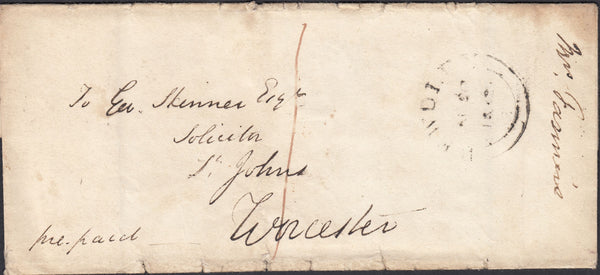 To Geo. Skinner Esqr
Solicitor
St Johns
Worcester
pre-paid
Mrs